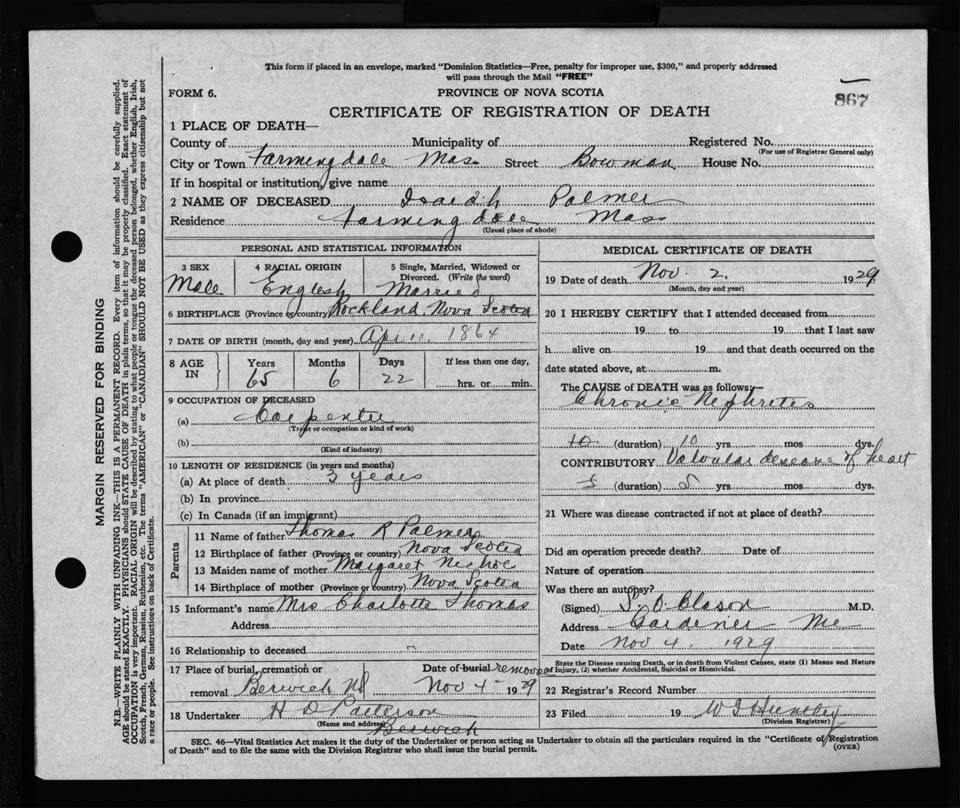 This form if placed in an envelope, marked "Dominion Statistics—Free, penalty for improper use, $300," and properly addressed
will pass through the Mail "FREE"
FORM 6. PROVINCE OF NOVA SCOTIA
867
CERTIFICATE OF REGISTRATION OF DEATH
1 PLACE OF DEATH—
County of Municipality of Registered No.
(For use of Registrar General only)
City or Town Farmingdale Mas Street Bowman House No.
If in hospital or institution, give name
2 NAME OF DECEASED Isaiah Palmer
Residence Farmingdale Mass
(Usual place of abode)
PERSONAL AND STATISTICAL INFORMATION
3 SEX 4 RACIAL ORIGIN 5 Single, Married, Widowed or
Divorced. (Write the word)
Male English Married
6 BIRTHPLACE (Province or country) Rockland Nova Scotia
7 DATE OF BIRTH (month, day and year) Apr 11 1864
8 AGE IN Years Months Days If less than one day,
65 6 22 hrs. or min.
9 OCCUPATION OF DECEASED
(a) Carpenter
(Trade or occupation or kind of work)
(b)
(Kind of industry)
10 LENGTH OF RESIDENCE (in years and months)
(a) At place of death 3 years
(b) In province
(c) In Canada (if an immigrant)
Parents
11 Name of father Thomas R Palmer
12 Birthplace of father (Province or country) Nova Scotia
13 Maiden name of mother Margaret
14 Birthplace of mother (Province or country) Nova Scotia
15 Informant's name Mrs Charlotte Thomas
Address
16 Relationship to deceased
17 Place of burial, cremation or Date of burial removal
removal Berwick NS Nov 4 - 1929
18 Undertaker H D Patterson
(Name and address)
Berwick
MEDICAL CERTIFICATE OF DEATH
19 Date of death Nov. 2, 1929
(Month, day and year)
20 I HEREBY CERTIFY that I attended deceased from
19 to 19 that I last saw
h alive on 19 and that death occurred on the
date stated above, at m.
The CAUSE of DEATH was as follows:—
Chronic Nephrites
10 (duration) 10 yrs. mos. dys.
CONTRIBUTORY Valvular desease of heart
5 (duration) 5 yrs. mos. dys.
21 Where was disease contracted if not at place of death?
Did an operation precede death? Date of
Nature of operation
Was there an autopsy?
(Signed) M.D.
Address Gardener Me
Date Nov 4, 1929
State the Disease causing Death, or in death from Violent Causes, state (1) Means and Nature
of Injury, (2) whether Accidental, Suicidal or Homicidal.
22 Registrar's Record Number
23 Filed 19
(Division Registrar)
SEC. 46—Vital Statistics Act makes it the duty of the Undertaker or person acting as Undertaker to obtain all the particulars required in the "Certificate of Registration
of Death" and to file the same with the Division Registrar who shall issue the burial permit.
(OVER)
MARGIN RESERVED FOR BINDING
N.B.—WRITE PLAINLY WITH UNFADING INK—THIS IS A PERMANENT RECORD. Every item of information should be carefully supplied.
AGE should be stated EXACTLY. PHYSICIANS should STATE CAUSE OF DEATH in plain terms, so that it may be properly classified. Exact statement of
OCCUPATION is very important. RACIAL ORIGIN will be described by stating to what people or tongue the deceased person belonged, whether English, Irish,
Scotch, French, German, Russian, Ruthenian, etc. The terms "AMERICAN" or "CANADIAN" SHOULD NOT BE USED as they express citizenship but not
a race or people. See instructions on back of Certificate.